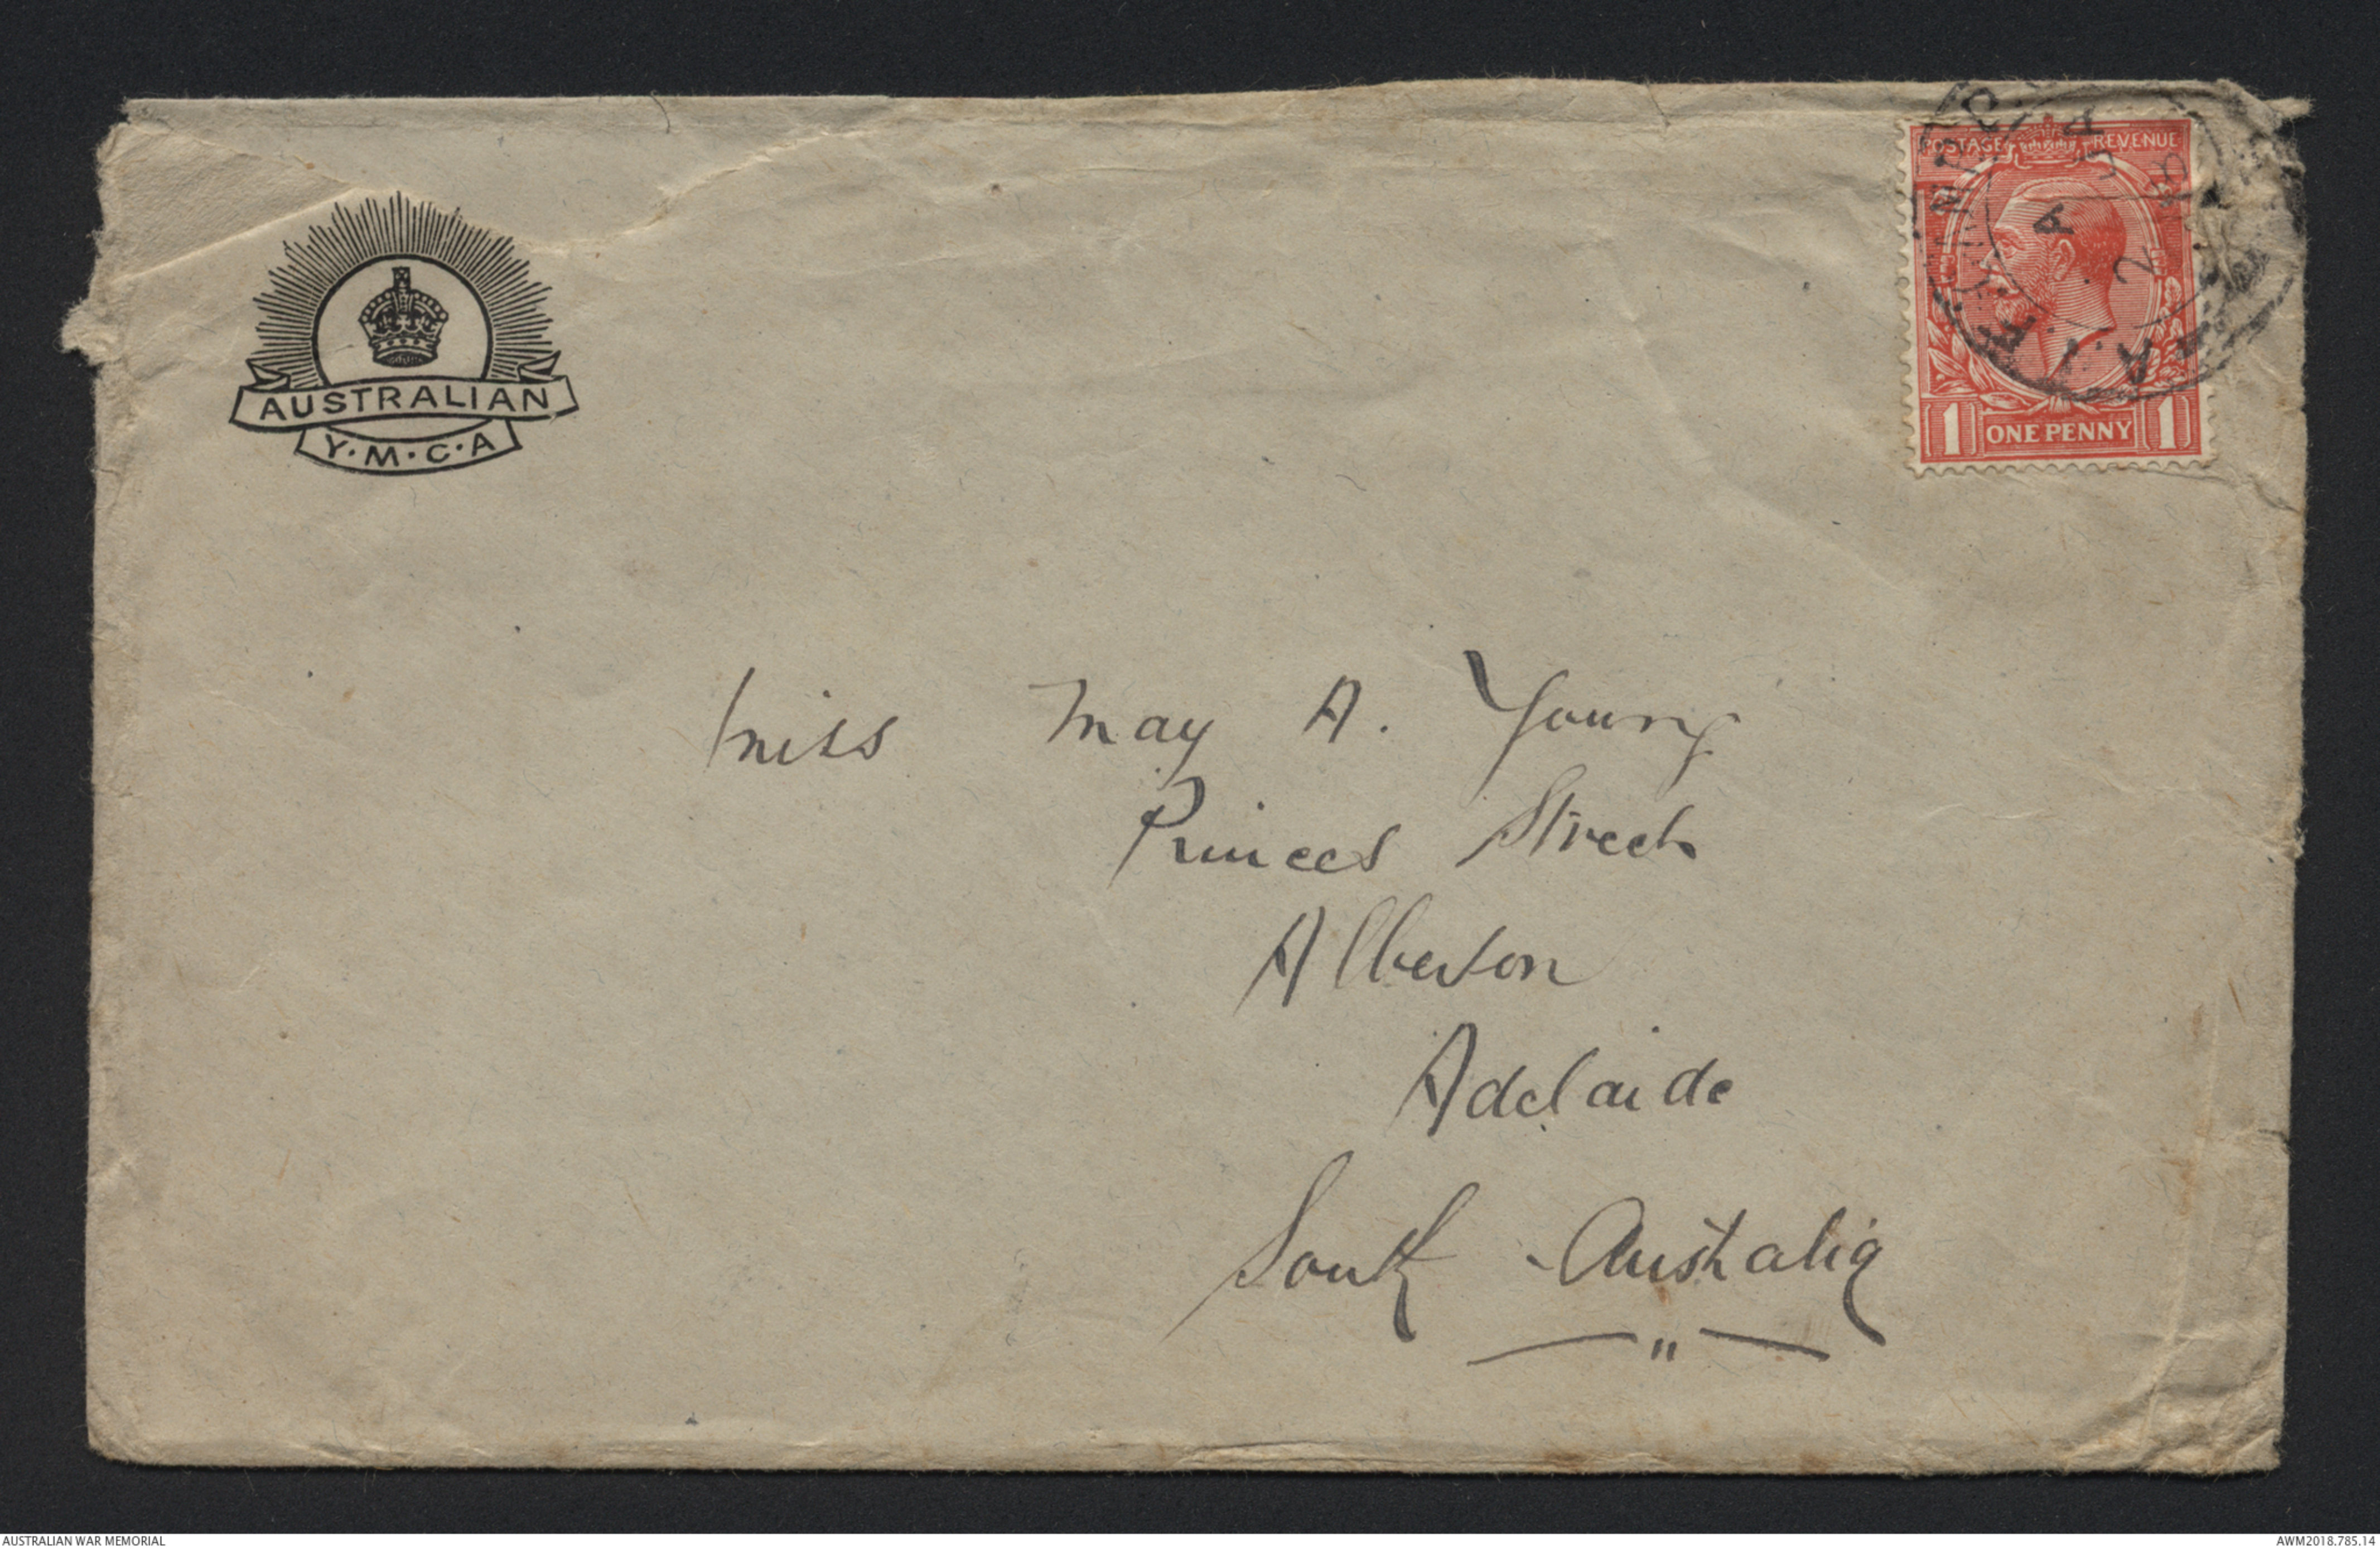 AUSTRALIAN
Y·M·C·A
POSTAGE REVENUE
1 ONE PENNY 1
Miss May A. Young
Princes Street
Alberton
Adelaide
South Australia
AUSTRALIAN WAR MEMORIAL
AWM2018.785.14